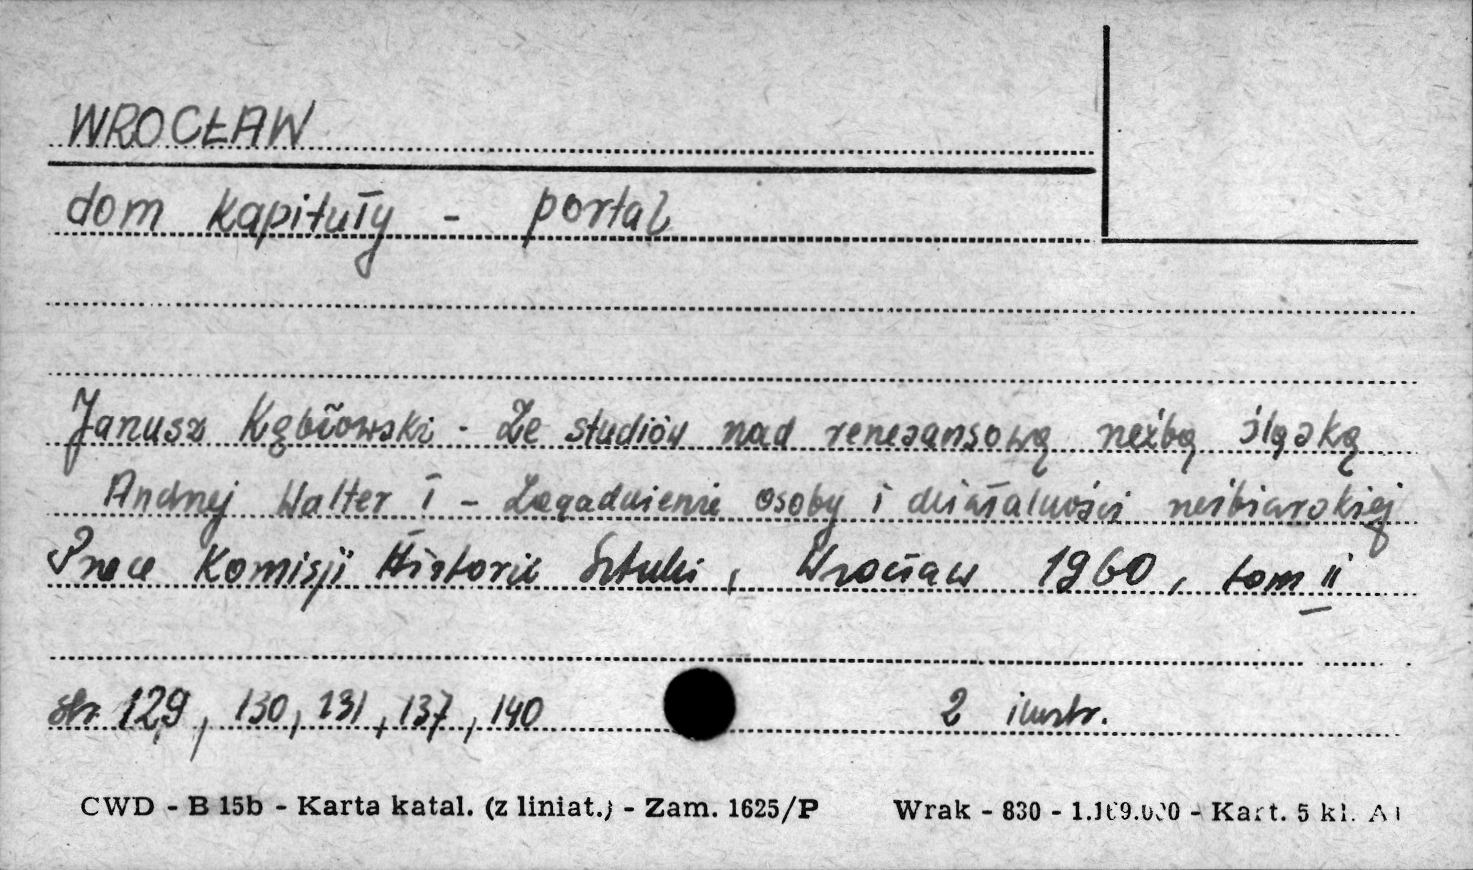 WROCŁAW
dom kapituły - portal
Janusz Kębłowski - Ze studiów nad renesansową rzeźbą śląską
Andrzej Walter I - Zagadnienie osoby i działalności rzeźbiarskiej
Prace Komisji Historii Sztuki, Wrocław 1960, tom II
str. 129, 130, 131, 137, 140 2 ilustr.
CWD - B 15b - Karta katal. (z liniat.) - Zam. 1625/P Wrak - 830 - - Kart. 5 kl.